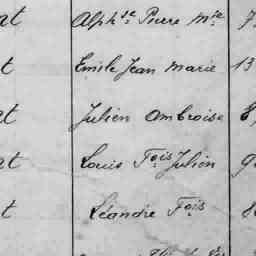 at Alphse Pierre Mie
t Emile Jean Marie 13
at Julien Ambroise
at Louis Fois Julien
t Léandre Fois